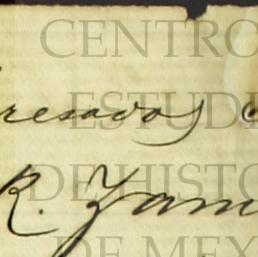 CENTRO
resados
ESTUDI
DE HISTO
R. Zam
DE MEX